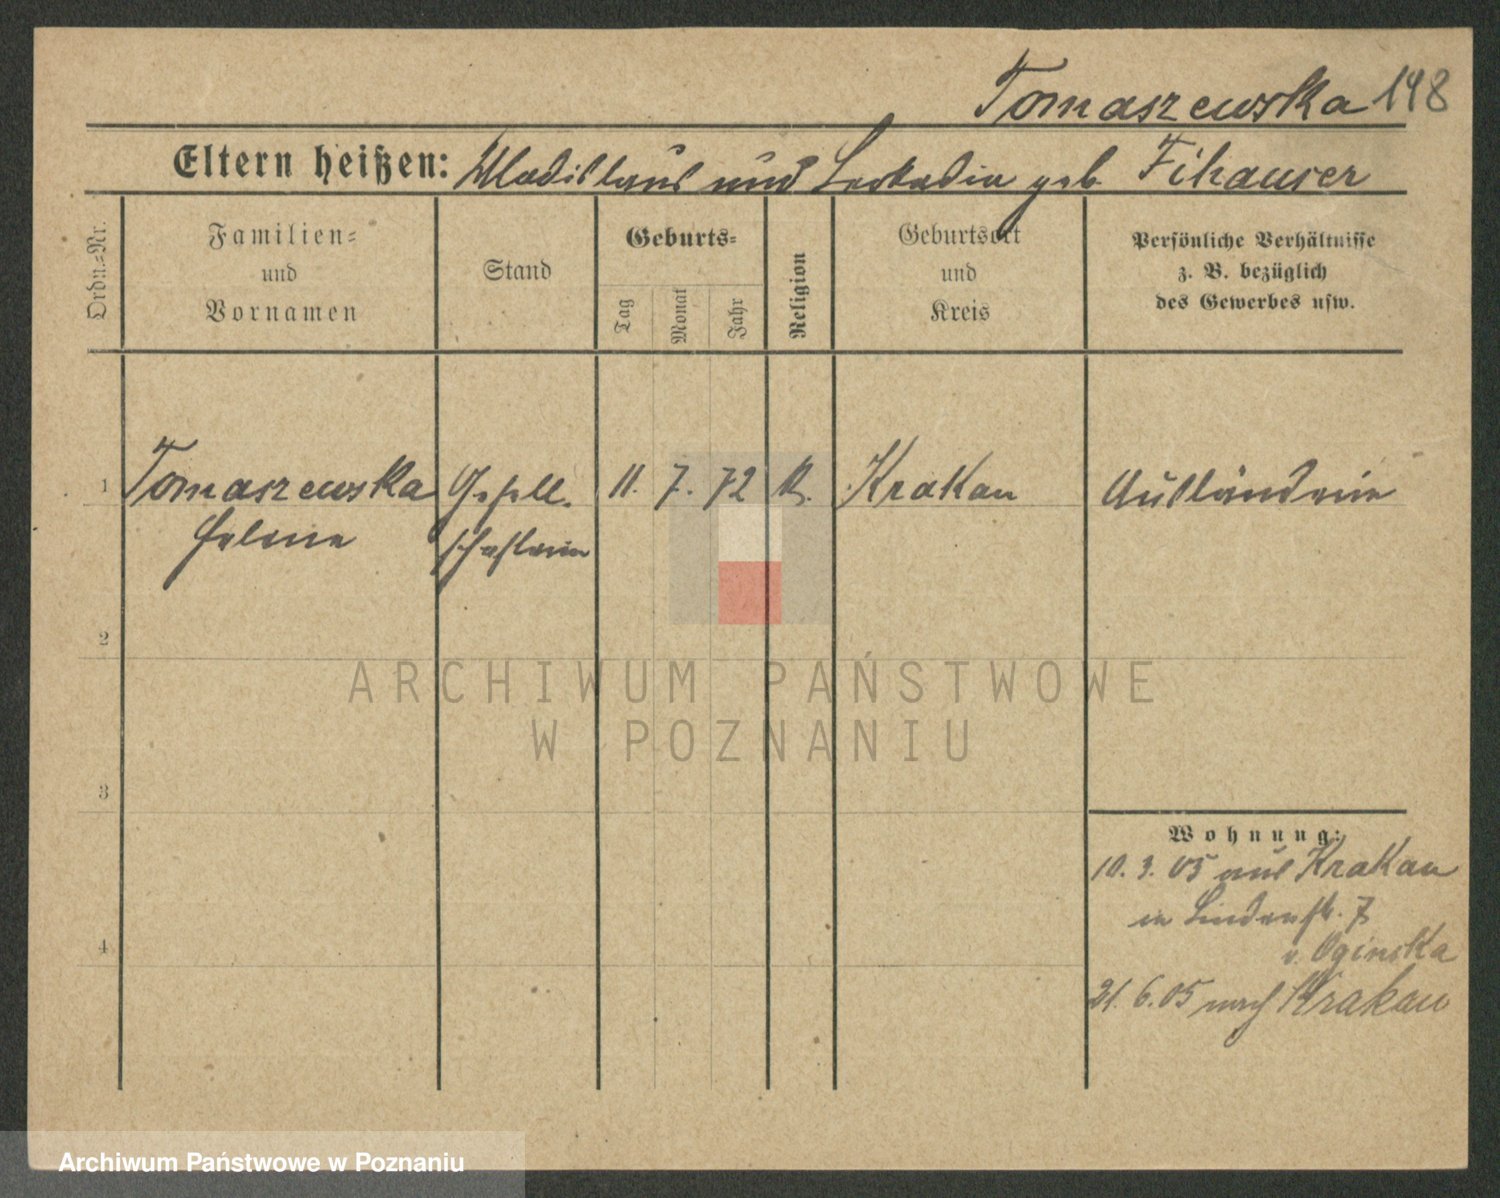 Tomaszewska 148
Eltern heißen: Wladislaus und Leokadia geb. Fihauser
Ordn.=Nr.
Familien=
und
Vornamen
Stand
Geburts=
Tag
Monat
Jahr
Religion
Geburtsort
und
Kreis
Persönliche Verhältnisse
z. B. bezüglich
des Gewerbes usw.
1 Tomaszewska Gesell. 11. 7. 72 K. Krakau Ausländerin
Helene schafterin
2
ARCHIWUM PAŃSTWOWE
W POZNANIU
3
Wohnung:
10. 3. 05 aus Krakau
in Lindenstr. 7
v. Oginska
4
21. 6. 05 nach Krakau
Archiwum Państwowe w Poznaniu